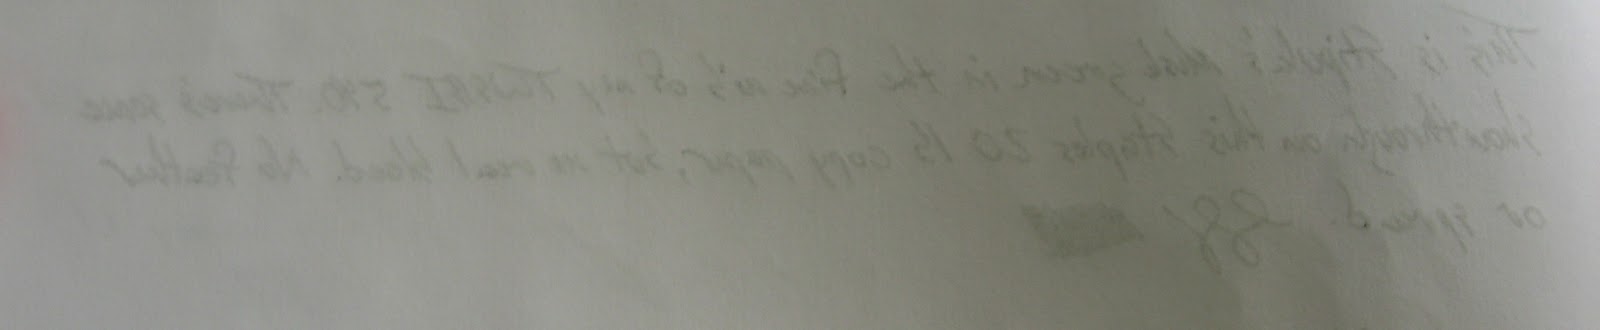 This is Stipula's dark green in the fine nib of my TWSBI 540. There's some
showthrough on this Staples 20 lb copy paper, but no real bleed. No feather
or spread.